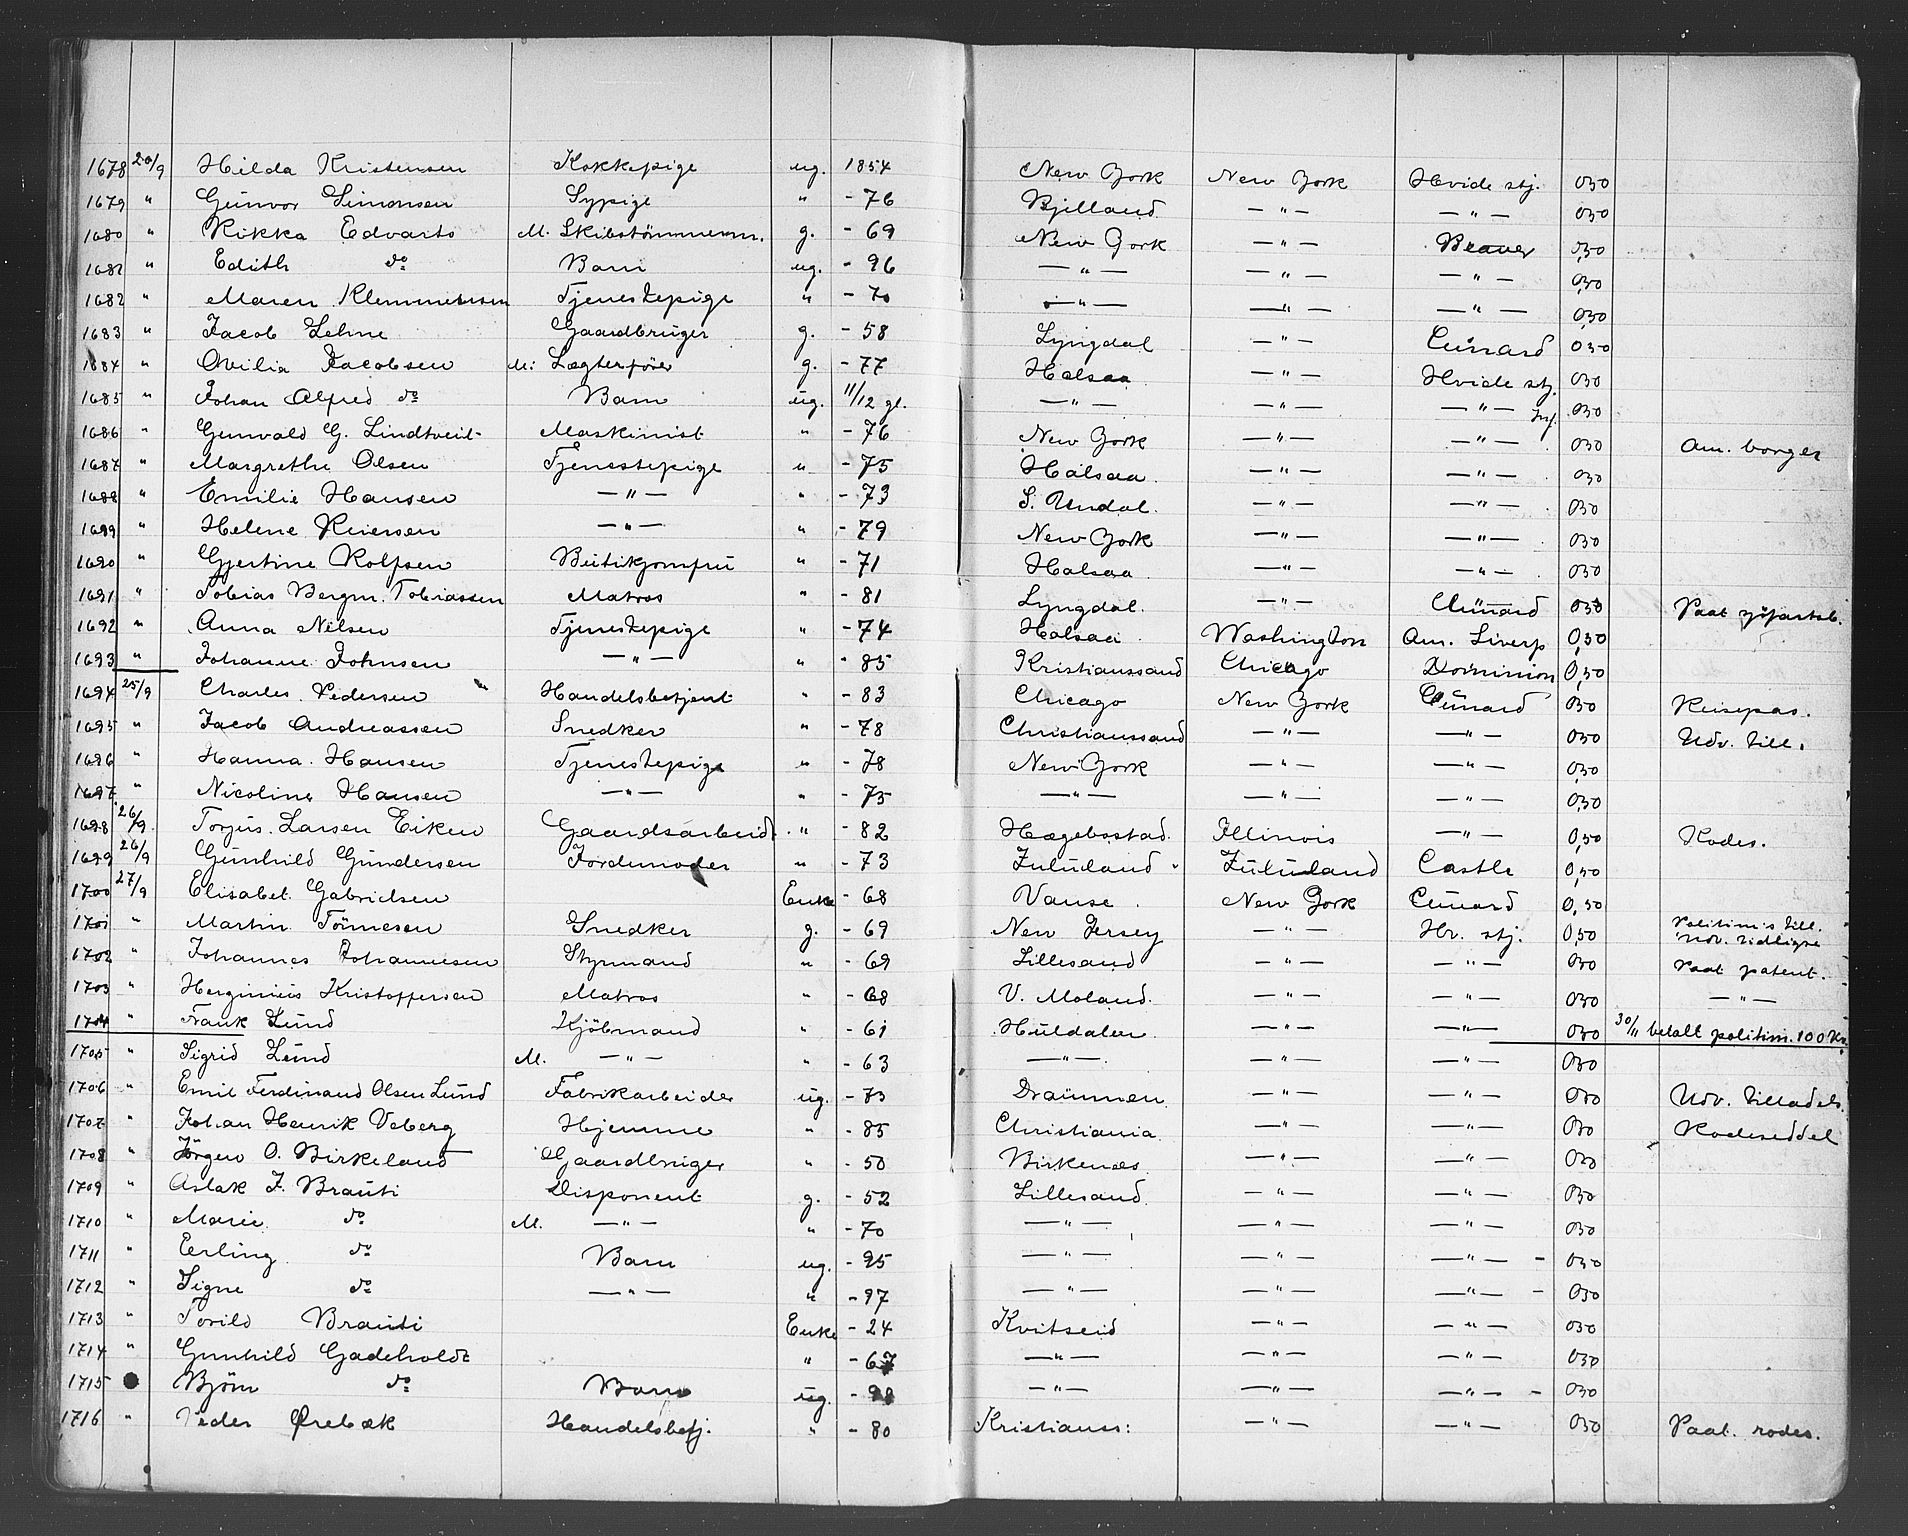 1678 20/9 Hilda Kristensen Kokkepige ug. 1854 New York New York Hvide stj. 0,50
1679 " Gunvor Simonsen Sypige " - 76 Bjelland — " — — " — 0,50
1680 " Rikka Edvards M. Skibstømmerm. g. - 69 New York — " — Beaver 0,50
1681 " Edith do Barn ug. - 96 — " — — " — — " — 0,50
1682 " Maren Klemmetsen Tjenestepige " - 70 — " — — " — — " — 0,50
1683 " Jacob Lehne Gaardbruger g. - 58 Lyngdal — " — Cunard 0,50
1684 " Ovilia Jacobsen M. Lægterfører g. - 77 Halsaa — " — Hvide stj. 0,50
1685 " Johan Alfred do Barn ug. 11/12 gl. — " — — " — — " — Inf. 0,50
1686 " Gunvald G. Lindtveit Maskinist " - 76 New York — " — — " — 0,50 Am. borger
1687 " Margrethe Olsen Tjenestepige " - 75 Halsaa — " — — " — 0,50
1688 " Emilie Hansen — " — " - 73 S. Undal. — " — — " — 0,50
1689 " Helene Reiersen — " — " - 79 New York — " — — " — 0,50
1690 " Gjertine Rolfsen Butikjomfru " - 71 Halsaa — " — — " — 0,50
1691 " Tobias Bergm. Tobiassen Matros " - 81 Lyngdal. — " — Cunard 0,50 Paat.
1692 " Anna Nilsen Tjenestepige " - 74 Halsaa Washington Am. Liverp 0,50
1693 " Johanne Johnsen — " — " - 85 Kristianssand Chicago Dominion 0,50
1694 25/9 Charles Pedersen Handelsbetjent " - 83 Chicago New York Cunard 0,50 Reisepas.
1695 " Jacob Andreassen Snedker " - 78 Christianssand — " — — " — 0,50 Udv. till.
1696 " Hanna Hansen Tjenestepige " - 78 New York — " — — " — 0,50
1697 " Nicoline Hansen — " — " - 75 — " — — " — — " — 0,50
1698 26/9 Torjus Larsen Eiken Gaardsarbeid. " - 82 Hægebostad. Illinois — " — 0,50 Rodes.
1699 26/9 Gunhild Gundersen Jordemoder " - 73 Zululand Zululand Castle 0,50
1700 27/9 Elisabet Gabrielsen Enke - 68 Vanse New York Cunard 0,50
1701 " Martin Tönnesen Snedker g. - 69 New Jersey — " — Hv. stj. 0,50 Politim's till. Udv. tidligre
1702 " Johannes Johannesen Styrmand " - 69 Lillesand — " — — " — 0,50 Paat patent.
1703 " Herginius Kristoffersen Matros " - 68 V. Moland. — " — — " — 0,50 — " —
1704 " Frank Lund Kjöbmand " - 61 Huldalen — " — — " — 0,50 30/11 betalt politim. 100 Kr.
1705 " Sigrid Lund M. — " — " - 63 — " — — " — — " — 0,50
1706 " Emil Ferdinand Olsen Lund Fabrikarbeider ug. - 73 Drammen — " — — " — 0,50 Udv. tilladels.
1707 " Johan Henrik Veberg Hjemme " - 85 Christiania — " — — " — 0,50 Rodeseddel
1708 " Jörgen O. Birkeland Gaardbruger " - 50 Birkenæs — " — — " — 0,50
1709 " Aslak J. Brauti Disponent g. - 52 Lillesand — " — — " — 0,50
1710 " Marie do M. — " — " - 70 — " — — " — — " — 0,50
1711 " Erling do Barn ug. - 95 — " — — " — — " — 0,50
1712 " Signe do — " — " - 97 — " — — " — — " — 0,50
1713 " Torild Brauti Enke - 24 Kvitseid — " — — " — 0,50
1714 " Gunhild Gadeholdt " - 67 — " — — " — — " — 0,50
1715 Bjørn do Barn ug. - 98 — " — — " — — " — 0,50
1716 " Peder Ørebæk Handelsbetj. " - 80 Kristianss: — " — — " — 0,50 Paat. rodes.